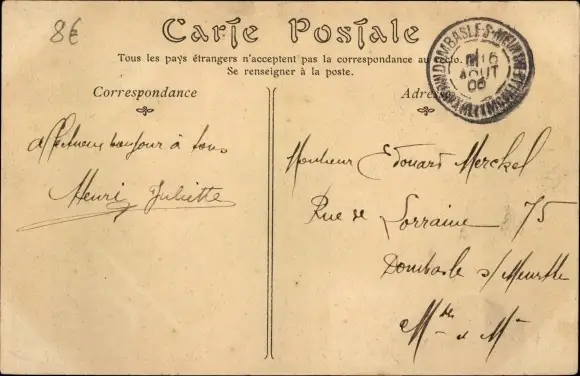 8€
Carte Postale
Tous les pays étrangers n'acceptent pas la correspondance au recto.
Se renseigner à la poste.
Correspondance
Adresse
DOMBASLE-S-MEURTHE
16
AOUT
06
MEURTHE ET MOSELLE
affectueux bonjour à tous
Henri Juliette
Monsieur Edouard Merckel
Rue de Lorraine 75
Dombasle s/ Meurthe
Mthe & Mlle